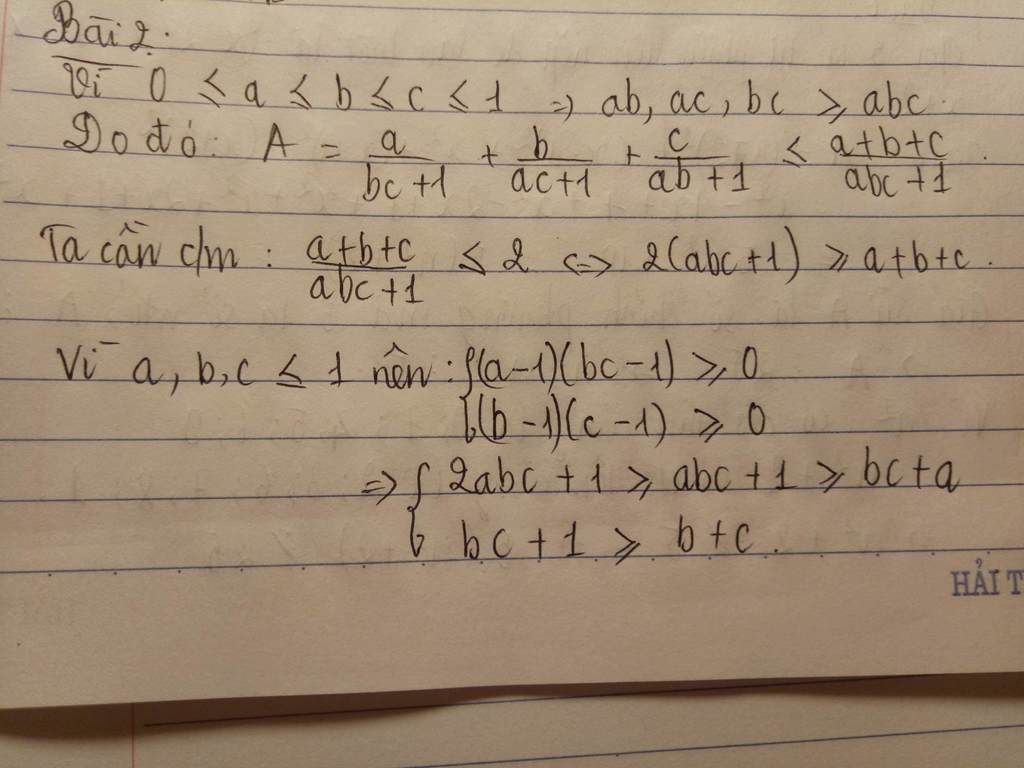 Bài 2:
Vì 0 ≤ a ≤ b ≤ c ≤ 1 => ab, ac, bc ≥ abc.
Do đó: A = a/(bc+1) + b/(ac+1) + c/(ab+1) ≤ (a+b+c)/(abc+1).
Ta cần c/m: (a+b+c)/(abc+1) ≤ 2 <=> 2(abc+1) ≥ a+b+c.
Vì a, b, c ≤ 1 nên: { (a-1)(bc-1) ≥ 0
(b-1)(c-1) ≥ 0
=> { 2abc + 1 ≥ abc + 1 ≥ bc + a
bc + 1 ≥ b + c.
HẢI T